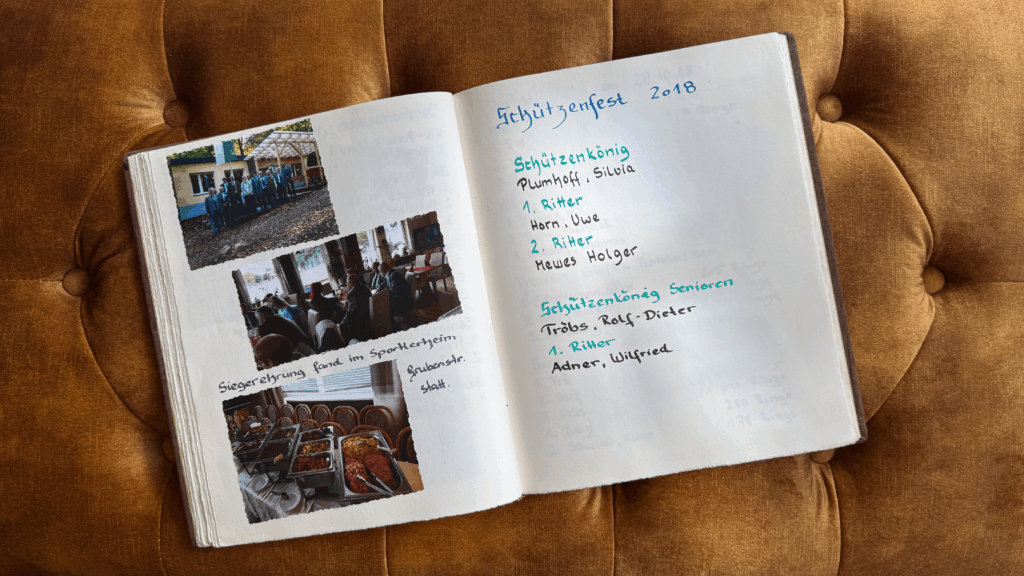 Siegerehrung fand im Sportlerheim
Grubenstr.
statt.
Schützenfest 2018
Schützenkönig
Plumhoff, Silvia
1. Ritter
Horn, Uwe
2. Ritter
Mewes Holger
Schützenkönig Senioren
Tröbs, Rolf-Dieter
1. Ritter
Adner, Wilfried